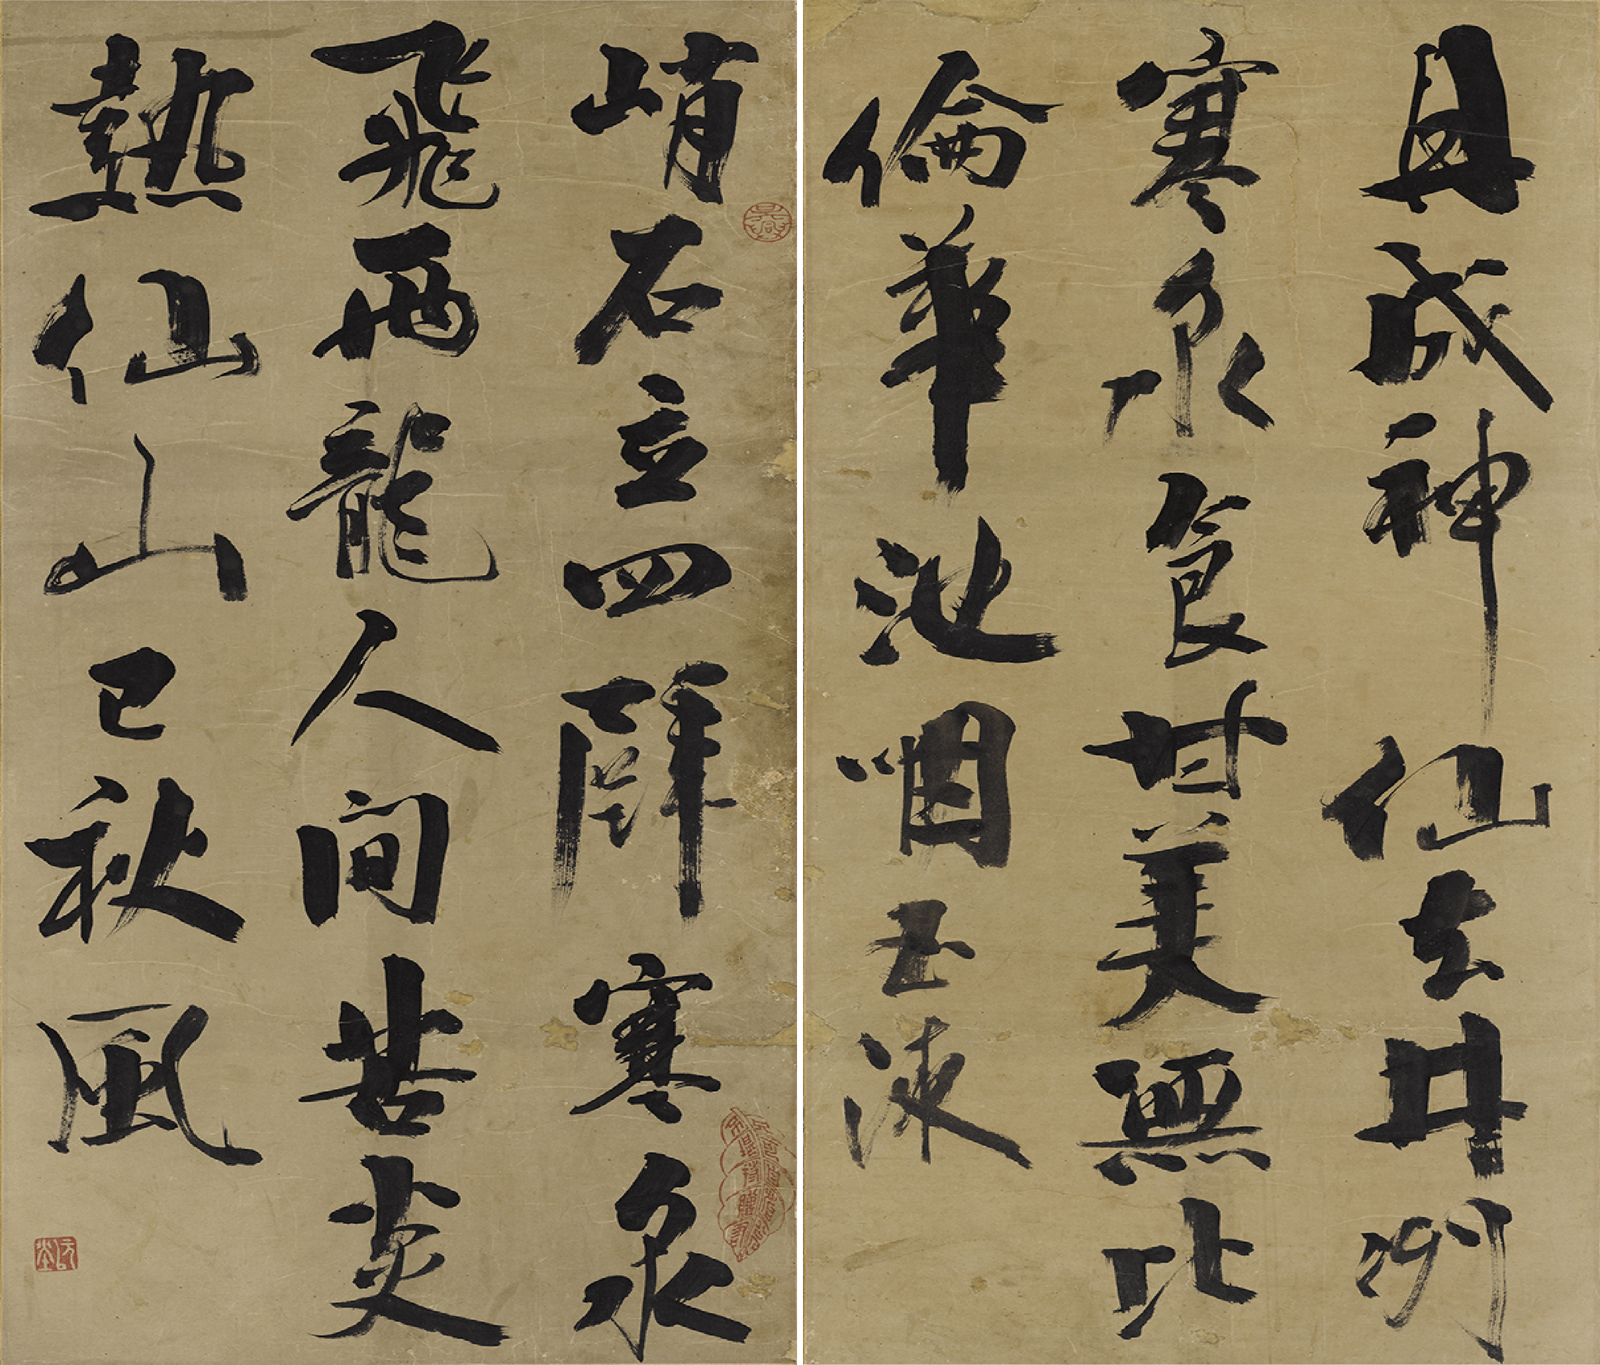 具成神仙去井冽
寒泉食甘美無比
倫華池咽玉液
峭石立四壁寒泉
飛兩龍人間苦炎
熱仙山已秋風